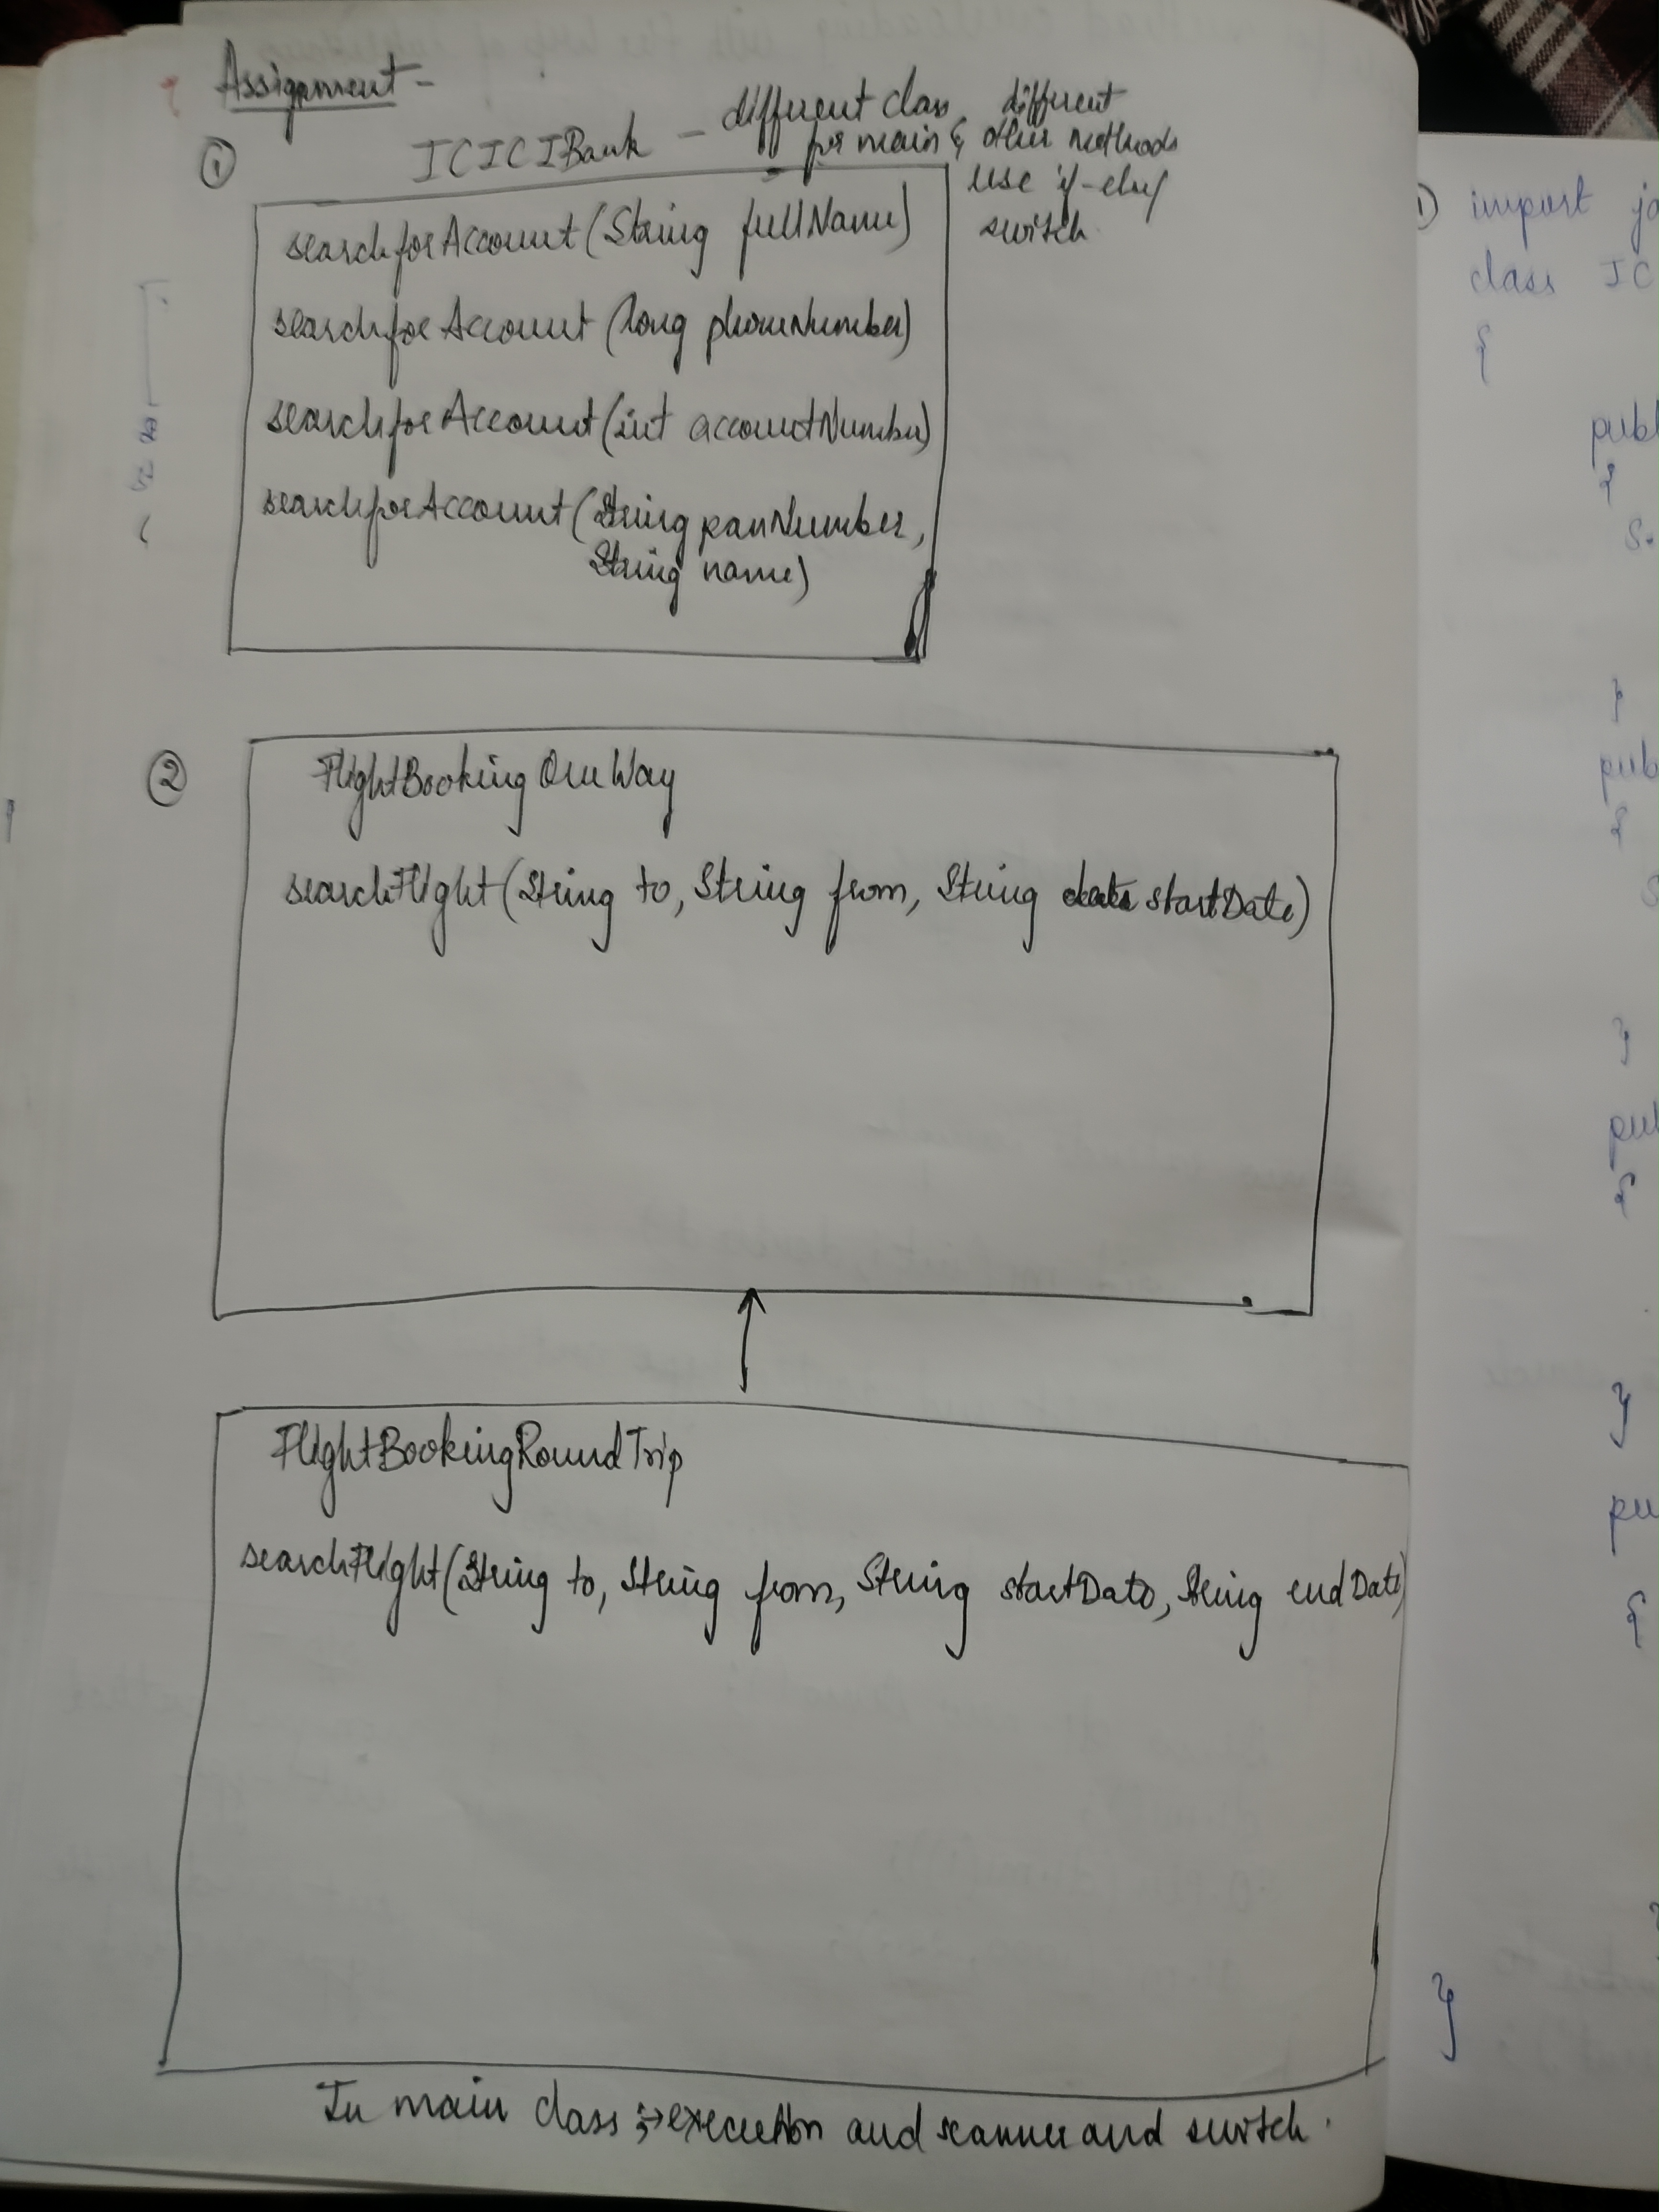 Assignment -
① ICICIBank - different class, different
for main & other methods
use if-else/
switch
searchforAccount(String fullName)
searchforAccount(long phoneNumber)
searchforAccount(int accountNumber)
searchforAccount(String panNumber,
String name)
② FlightBookingOneWay
searchFlight(String to, String from, String startDate)
FlightBookingRoundTrip
searchFlight(String to, String from, String startDate, String endDate)
In main class ;→ execution and scanner and switch.
1) import ja
class IC
{
publ
{
S.
}
pub
{
S
}
pul
{
}
pu
{
}